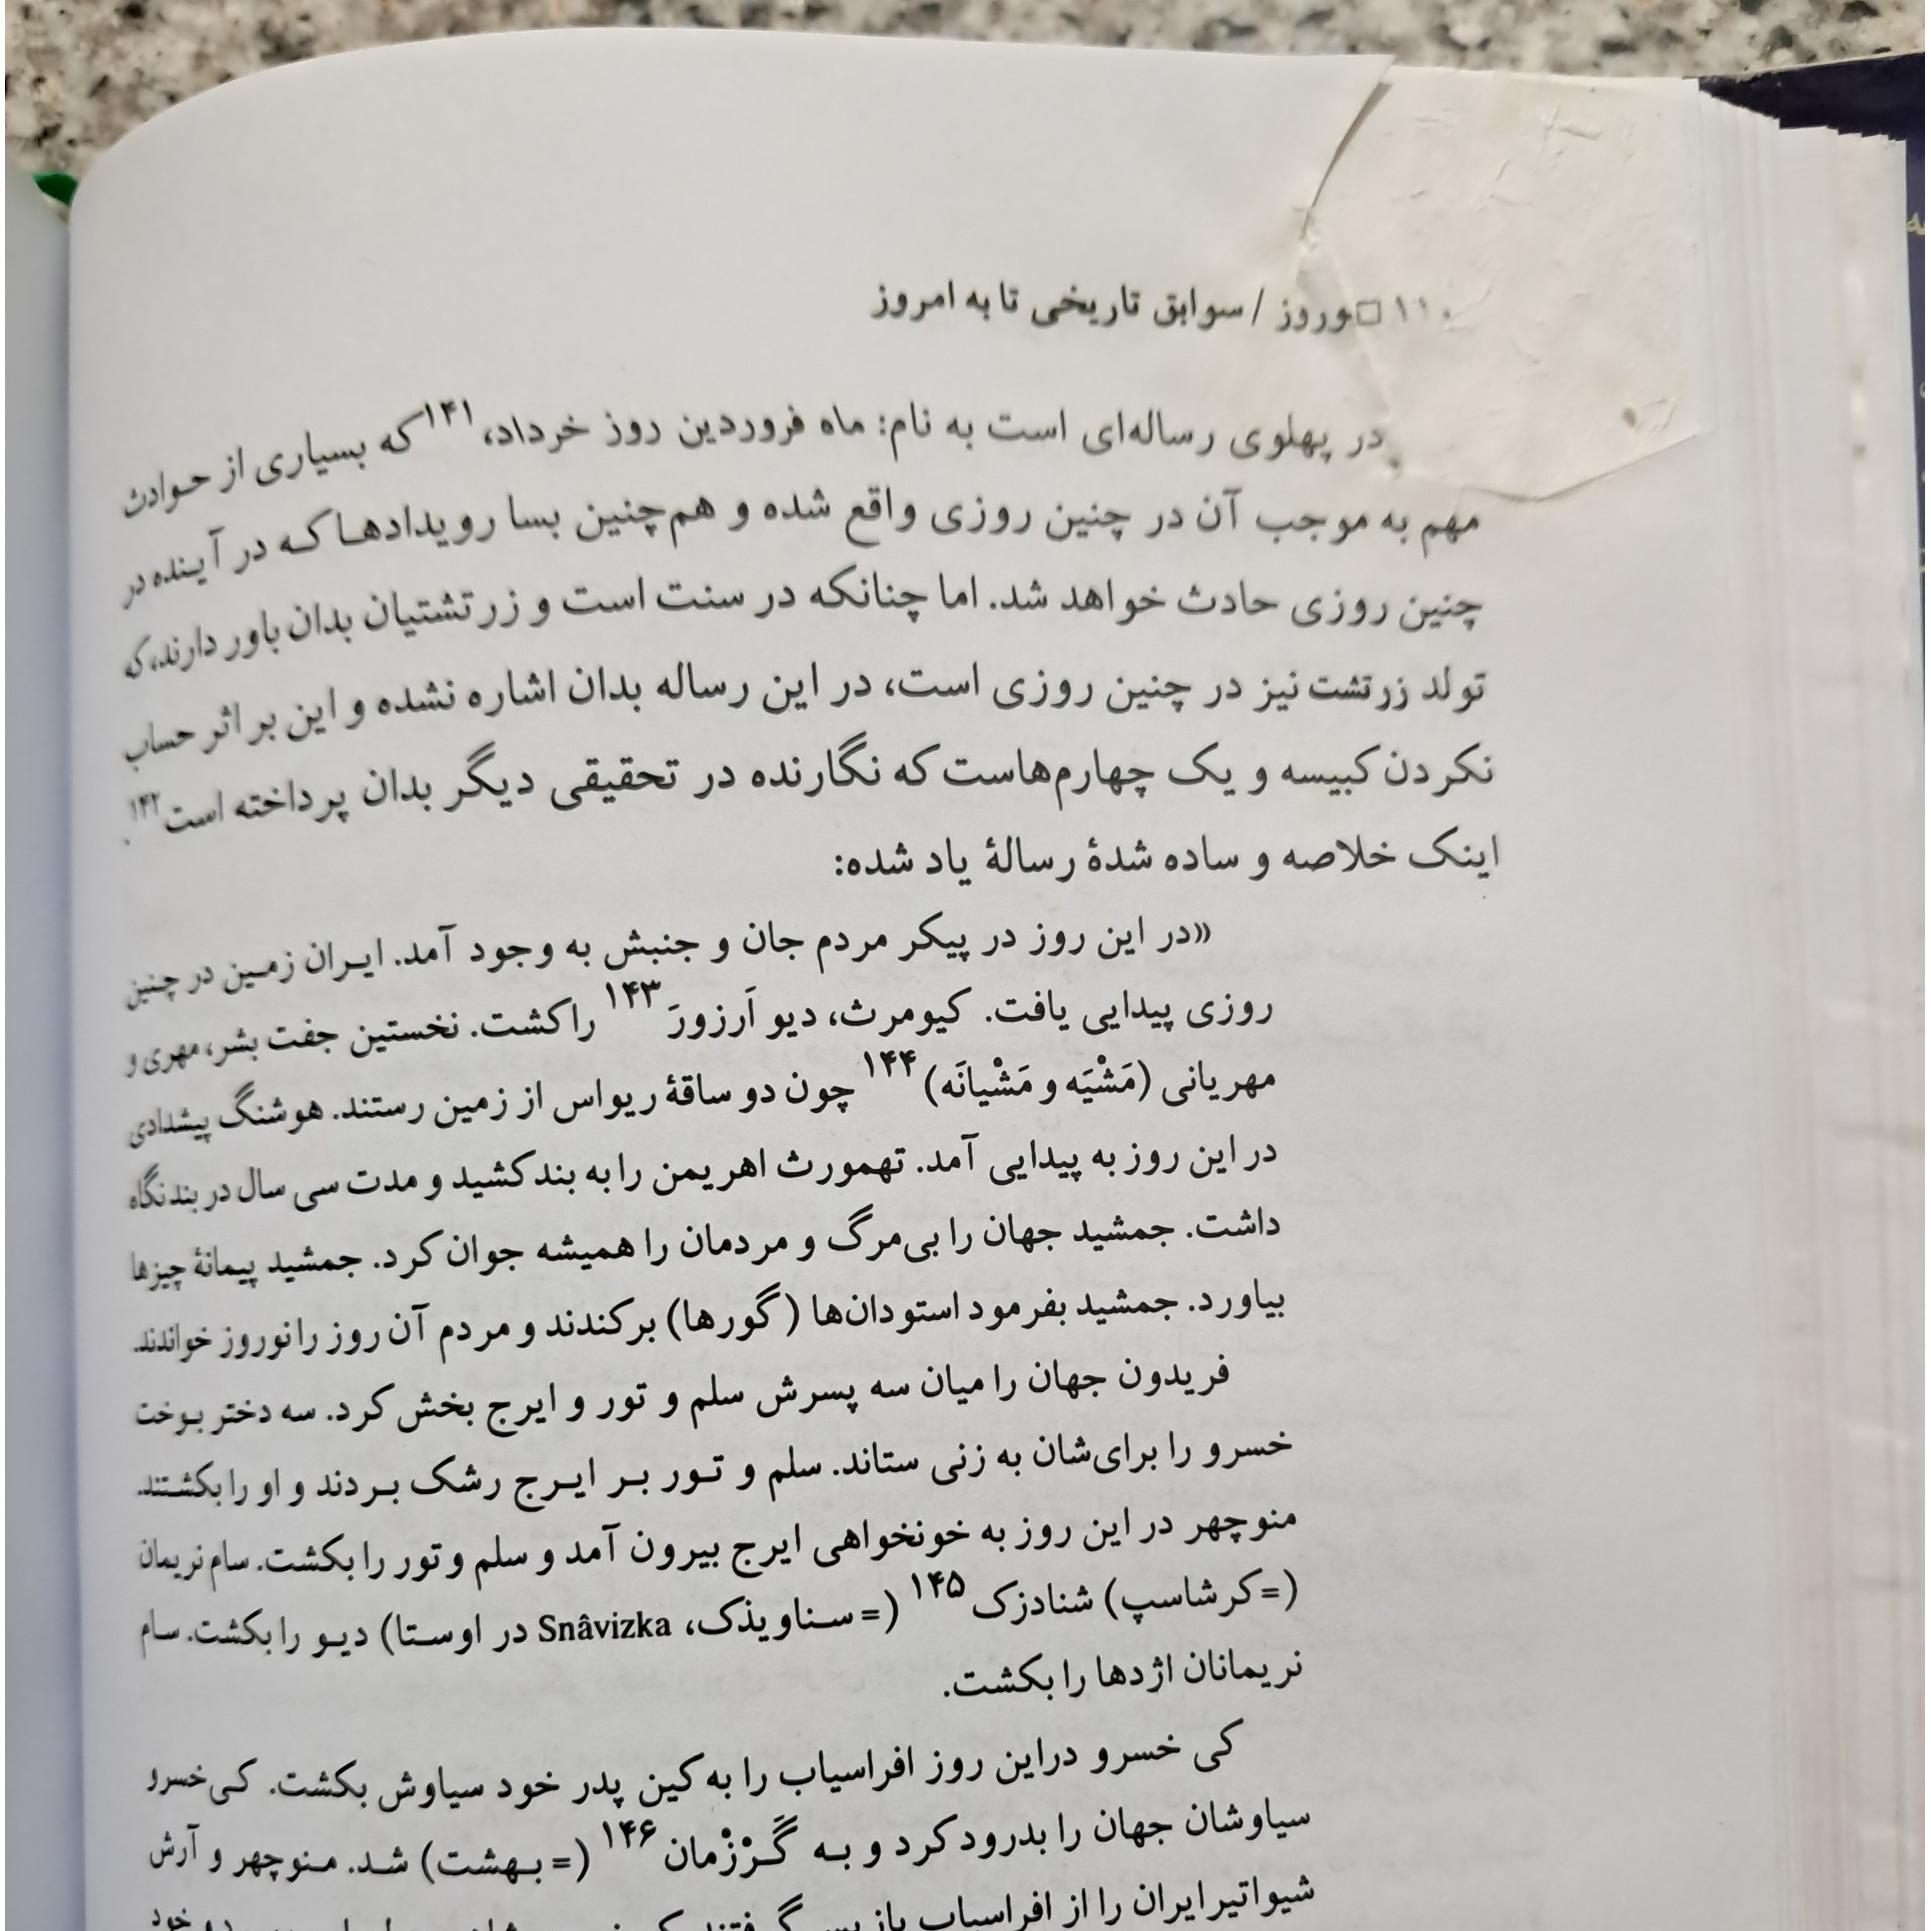 ۱۱۰ □ نوروز / سوابق تاریخی تا به امروز
در پهلوی رساله‌ای است به نام: ماه فروردین روز خرداد،۱۴۱ که بسیاری از حوادث
مهم به موجب آن در چنین روزی واقع شده و هم‌چنین بسا رویدادها که در آینده در
چنین روزی حادث خواهد شد. اما چنانکه در سنت است و زرتشتیان بدان باور دارند، که
تولد زرتشت نیز در چنین روزی است، در این رساله بدان اشاره نشده و این بر اثر حساب
نکردن کبیسه و یک چهارم‌هاست که نگارنده در تحقیقی دیگر بدان پرداخته است۱۴۲.
اینک خلاصه و ساده شدهٔ رسالهٔ یاد شده:
«در این روز در پیکر مردم جان و جنبش به وجود آمد. ایران زمین در چنین
روزی پیدایی یافت. کیومرث، دیو اَرزورَ ۱۴۳ را کشت. نخستین جفت بشر، مهری و
مهریانی (مَشْیَه و مَشْیانَه) ۱۴۴ چون دو ساقهٔ ریواس از زمین رستند. هوشنگ پیشدادی
در این روز به پیدایی آمد. تهمورث اهریمن را به بند کشید و مدت سی سال در بند نگاه
داشت. جمشید جهان را بی‌مرگ و مردمان را همیشه جوان کرد. جمشید پیمانهٔ چیزها
بیاورد. جمشید بفرمود استودان‌ها (گورها) برکندند و مردم آن روز را نوروز خواندند.
فریدون جهان را میان سه پسرش سلم و تور و ایرج بخش کرد. سه دختر بوخت
خسرو را برای‌شان به زنی ستاند. سلم و تور بر ایرج رشک بردند و او را بکشتند.
منوچهر در این روز به خونخواهی ایرج بیرون آمد و سلم و تور را بکشت. سام نریمان
(=کرشاسپ) شنادزک ۱۴۵ (= سناویذک، Snâvizka در اوستا) دیو را بکشت. سام
نریمانان اژدها را بکشت.
کی خسرو دراین روز افراسیاب را به کین پدر خود سیاوش بکشت. کی‌خسرو
سیاوشان جهان را بدرود کرد و به گَرْزْمان ۱۴۶ (= بهشت) شد. منوچهر و آرش
شیواتیر ایران را از افراسیاب باز پس گرفتند